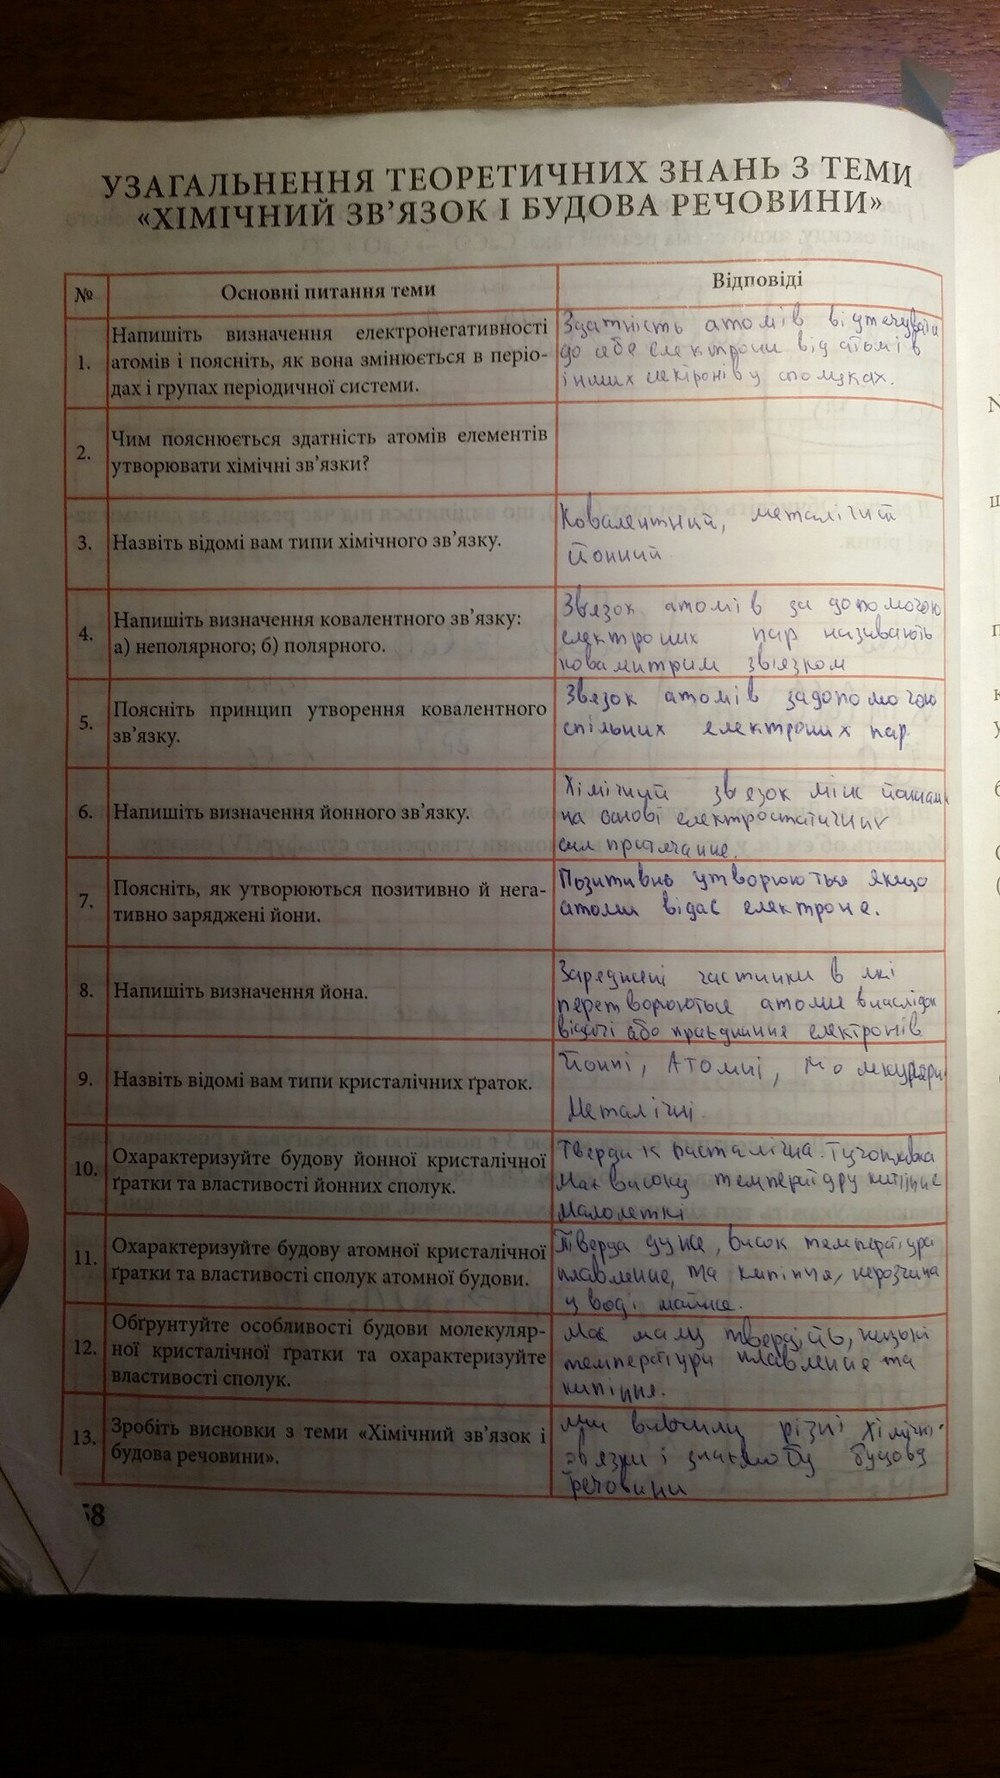 УЗАГАЛЬНЕННЯ ТЕОРЕТИЧНИХ ЗНАНЬ З ТЕМИ
«ХІМІЧНИЙ ЗВ’ЯЗОК І БУДОВА РЕЧОВИНИ»
№ Основні питання теми Відповіді
1.
Напишіть визначення електронегативності
атомів і поясніть, як вона змінюється в періо-
дах і групах періодичної системи.
Здатність атомів відтягувати
до себе електрони від атомів
інших
сполуках.
2.
Чим пояснюється здатність атомів елементів
утворювати хімічні зв’язки?
3.
Назвіть відомі вам типи хімічного зв’язку.
Ковалентний, металічний
Йонний
4.
Напишіть визначення ковалентного зв’язку:
а) неполярного; б) полярного.
Звязок атомів за допомогою
електроних пар називають
звязком
5.
Поясніть принцип утворення ковалентного
зв’язку.
Звязок атомів задопомогою
спільних електроних пар
6.
Напишіть визначення йонного зв’язку.
Хімічний звязок між йонами
на основі електростатичних
сил
7.
Поясніть, як утворюються позитивно й нега-
тивно заряджені йони.
Позитивно утворюються якщо
атоми відає електроне.
8.
Напишіть визначення йона.
частинки в які
перетворюються атоми внаслідок
або електронів
9.
Назвіть відомі вам типи кристалічних ґраток.
Йонні, Атомні,
Металічні.
10.
Охарактеризуйте будову йонної кристалічної
ґратки та властивості йонних сполук.
Тверди
Має високу температуру
Малолеткі
11.
Охарактеризуйте будову атомної кристалічної
ґратки та властивості сполук атомної будови.
Тверда дуже, висок температура
плавление, та нерозчина
у воді майже.
12.
Обґрунтуйте особливості будови молекуляр-
ної кристалічної ґратки та охарактеризуйте
властивості сполук.
Має малу твердість, низькі
температури плавление та
кипіння.
13.
Зробіть висновки з теми «Хімічний зв’язок і
будова речовини».
Ми вивчили різні хімічні
звязки і будову
речовини
58